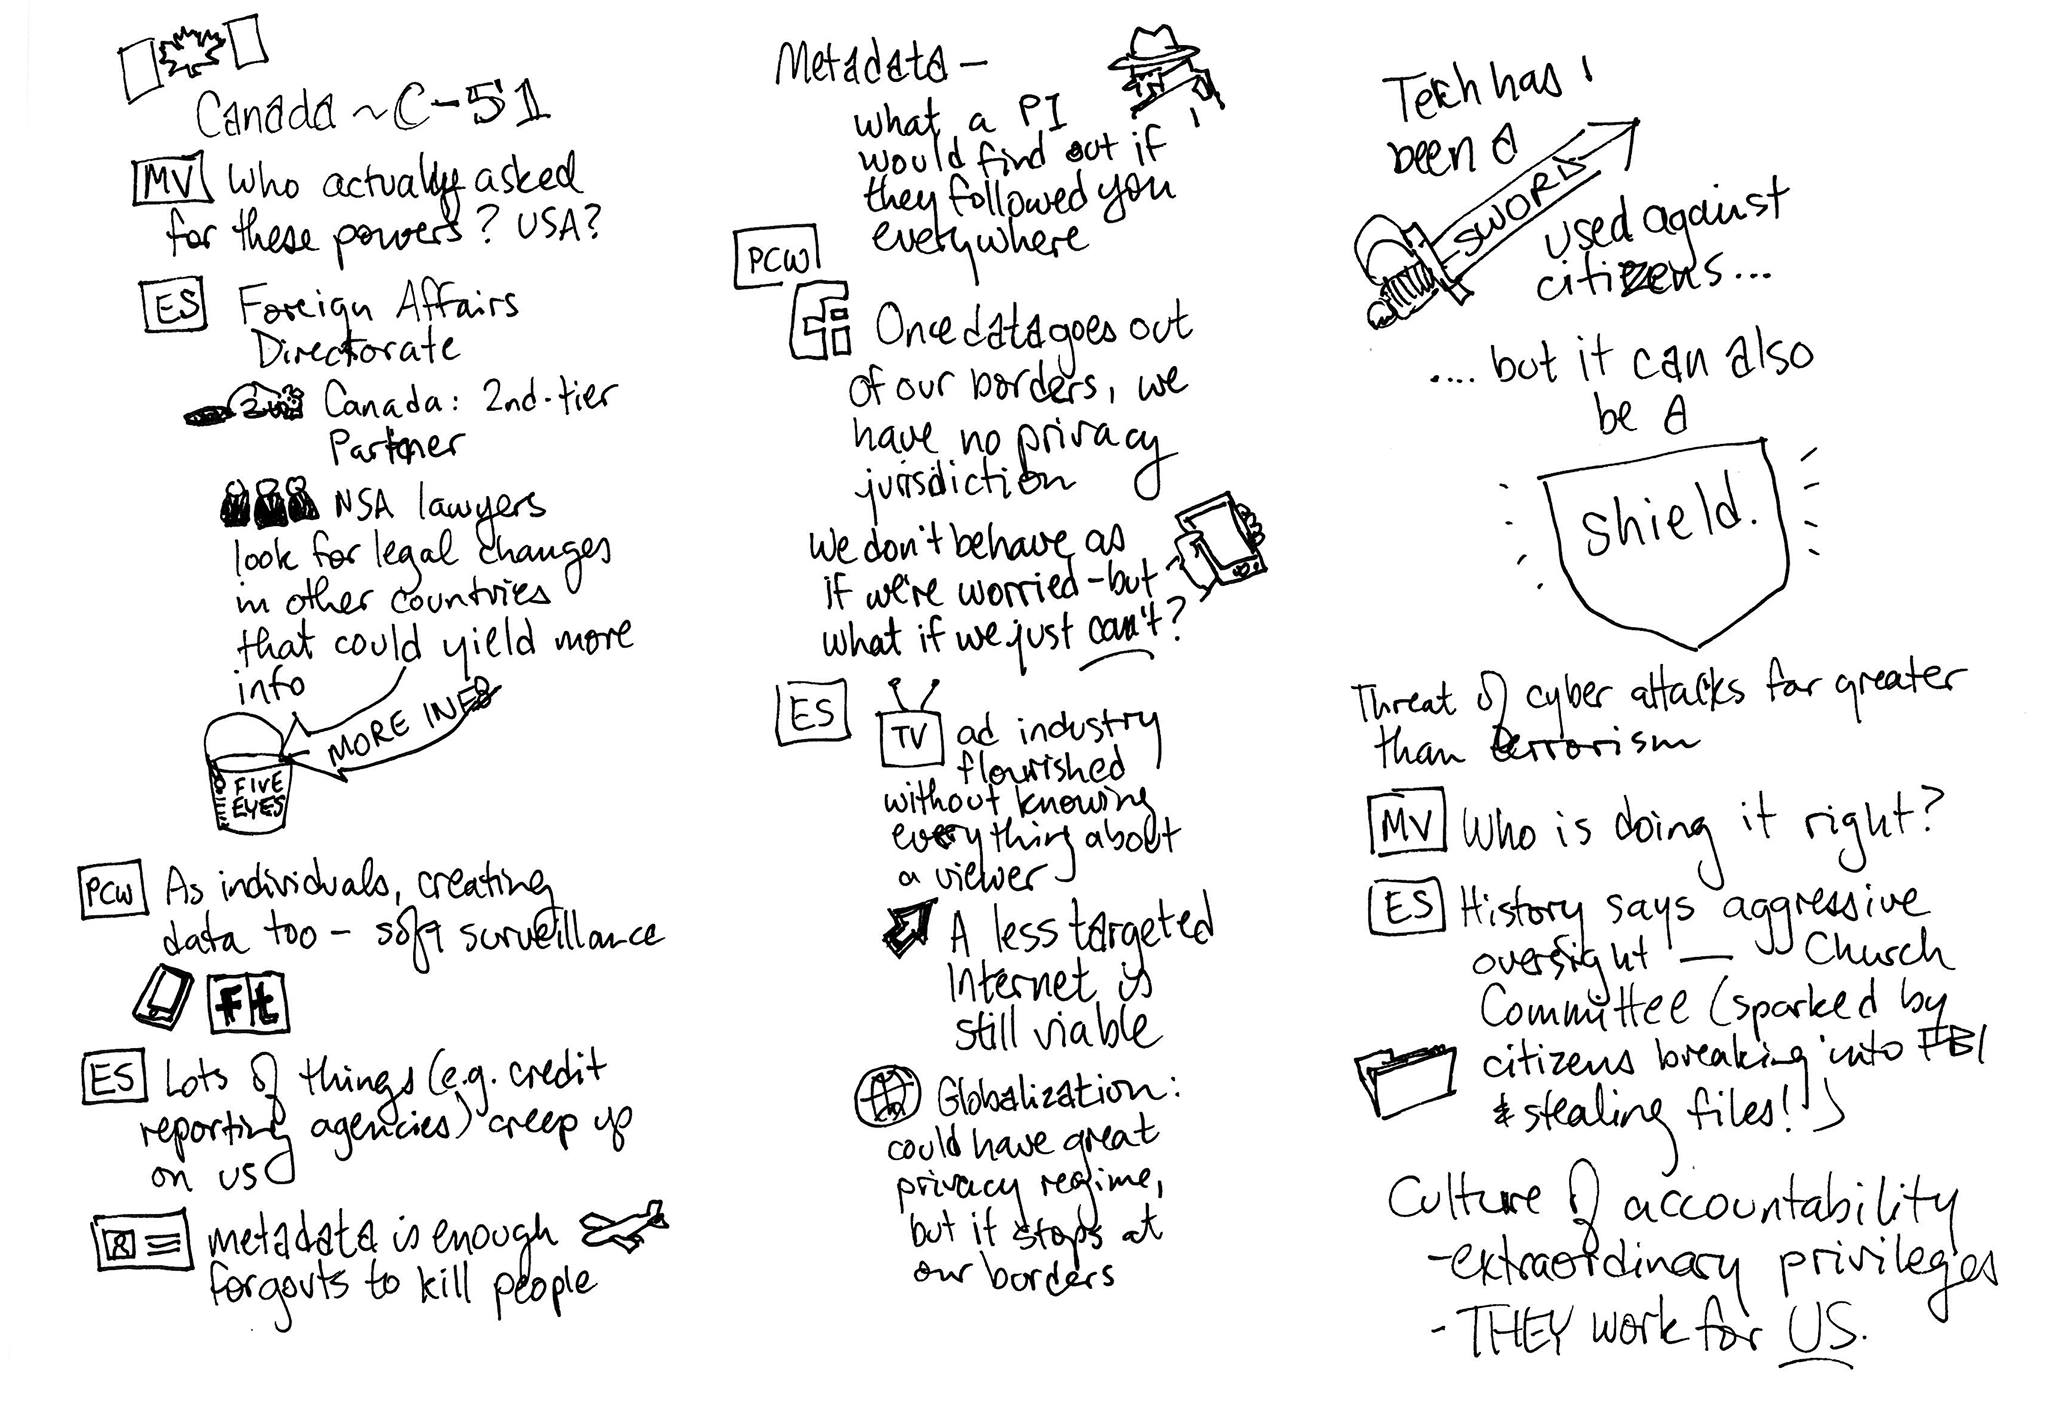 Canada ~ C-51
MV Who actually asked
for these powers? USA?
ES Foreign Affairs
Directorate
Canada: 2nd-tier
Partner
NSA lawyers
look for legal changes
in other countries
that could yield more
info
MORE INFO
FIVE
EYES
PCW As individuals, creating
data too - soft surveillance
f t
ES Lots of things (e.g. credit
reporting agencies) creep up
on us
metadata is enough
for gov'ts to kill people
Metadata -
what a PI
would find out if
they followed you
everywhere
PCW
Once data goes out
of our borders, we
have no privacy
jurisdiction
We don't behave as
if we're worried - but
what if we just can't?
ES TV ad industry
flourished
without knowing
everything about
a viewer
A less targeted
Internet is
still viable
Globalization:
could have great
privacy regime,
but it stops at
our borders
Tech has
been a
SWORD
used against
citizens...
.... but it can also
be a
shield.
Threat of cyber attacks far greater
than terrorism
MV Who is doing it right?
ES History says aggressive
oversight — Church
Committee (sparked by
citizens breaking into FBI
& stealing files!)
Culture of accountability
- extraordinary privileges
- THEY work for US.